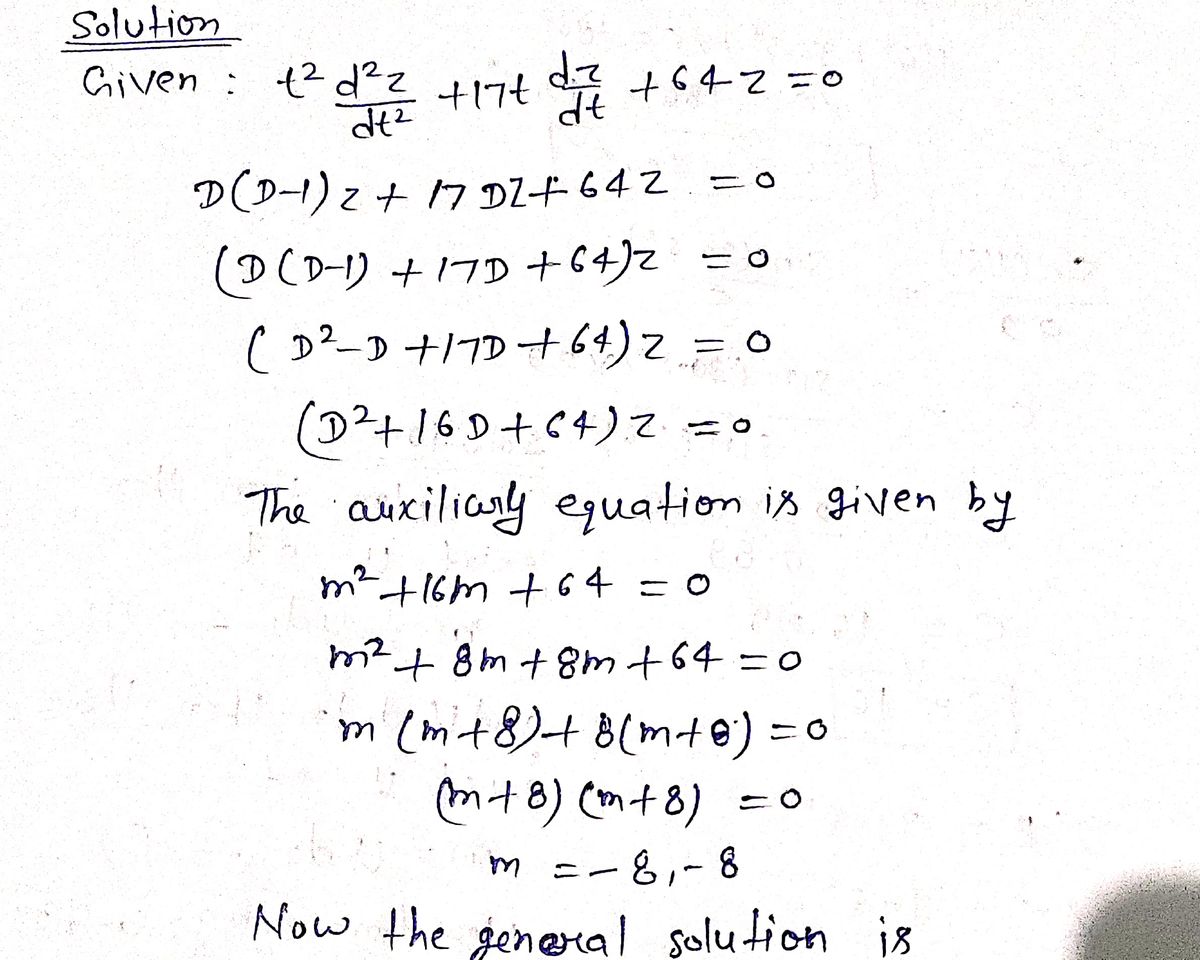 Solution
Given : t² d²z/dt² +17t dz/dt +64z =0
D(D-1)z + 17 DZ+64z =0
(D(D-1) +17D +64)z =0
( D²-D +17D +64)z = 0
(D²+16D+64)z =0
The auxiliary equation is given by
m²+16m +64 =0
m²+ 8m +8m +64 =0
m (m+8)+ 8(m+8) =0
(m+8) (m+8) =0
m =-8,-8
Now the general solution is